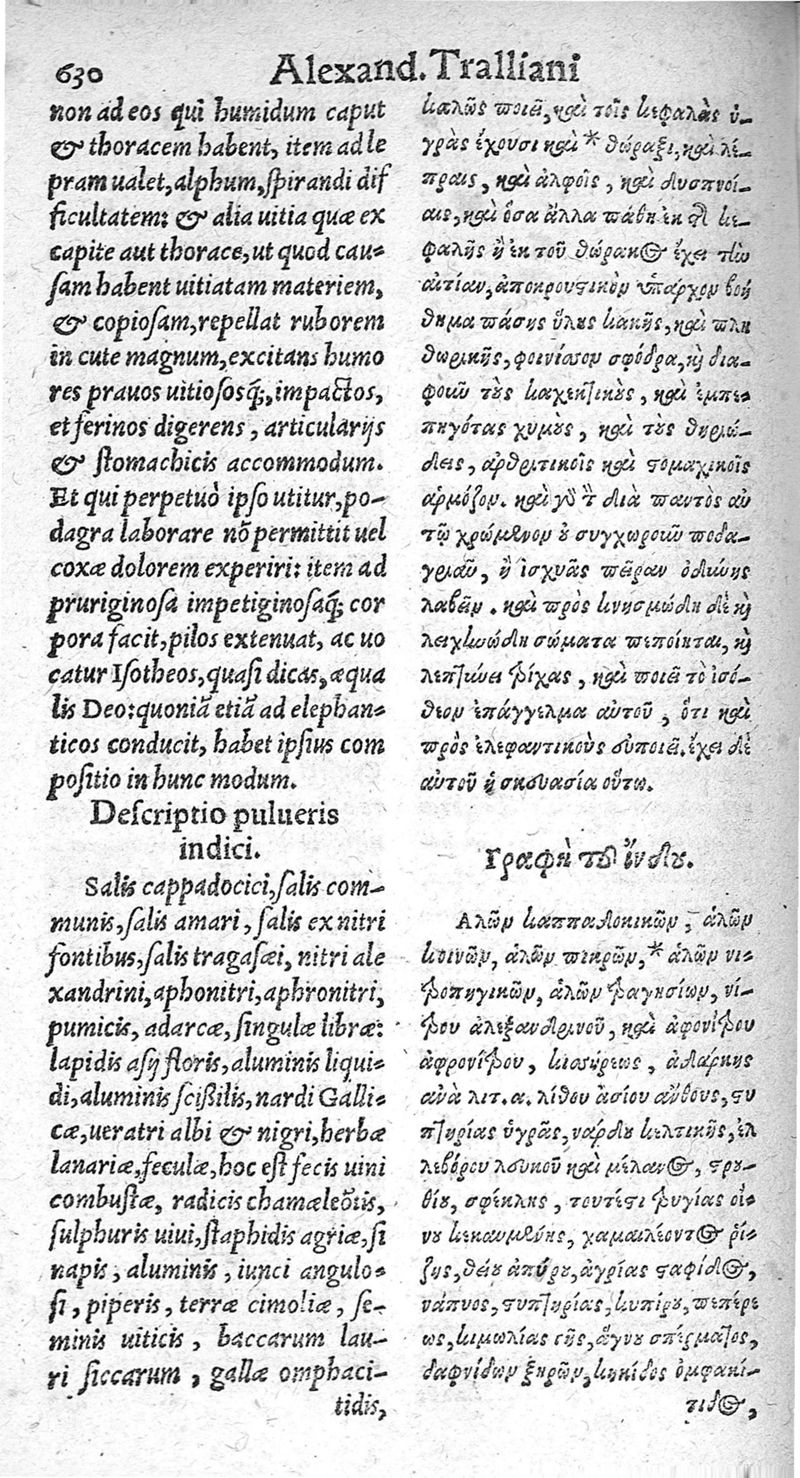 630 Alexand. Tralliani
non ad eos qui humidum caput
& thoracem habent, item ad le
pram ualet, alphum, spirandi dif
ficultatem: & alia uitia quæ ex
capite aut thorace, ut quod cau-
sam habent uitiatam materiem,
& copiosam, repellat ruborem
in cute magnum, excitans humo
res prauos uitiososq́;, impactos,
et ferinos digerens, articularijs
& stomachicis accommodum.
Et qui perpetuò ipso utitur, po-
dagra laborare nõ permittit uel
coxæ dolorem experiri: item ad
pruriginosa impetiginosaq́; cor
pora facit, pilos extenuat, ac uo
catur Isotheos, quasi dicas, æqua
lis Deo: quoniã etiã ad elephan-
ticos conducit, habet ipsius com
positio in hunc modum.
Descriptio pulueris
indici.
Salis cappadocici, salis com-
munis, salis amari, salis ex nitri
fontibus, salis tragasæi, nitri ale
xandrini, aphonitri, aphronitri,
pumicis, adarcæ, singulæ libræ:
lapidis asij floris, aluminis liqui-
di, aluminis scißilis, nardi Galli-
cæ, ueratri albi & nigri, herbæ
lanariæ, feculæ, hoc est fecis uini
combustæ, radicis chamæleõtis,
sulphuris uiui, staphidis agriæ, si
napis, aluminis, iunci angulo-
si, piperis, terræ cimoliæ, se-
minis uiticis, baccarum lau-
ri siccarum, gallæ omphaci-
tidis,
καλῶς ποιεῖ, καὶ τοῖς κεφαλὰς ὑ-
γρὰς ἔχουσι καὶ * θώραξι, καὶ λέ-
πραις, καὶ ἀλφοῖς, καὶ δυσπνοί-
αις, καὶ ὅσα ἄλλα πάθη ἐκ τῆς κε-
φαλῆς ἢ ἐκ τοῦ θώρακος ἔχει τὴν
αἰτίαν, ἀποκρουστικὸν ὑπάρχον βοή
θημα πάσης ὕλης κακῆς, καὶ πλη
θωρικῆς, φοινίσσον σφόδρα, καὶ δια-
φοροῦν τοὺς καχεκτικοὺς, καὶ ἐμπε-
πηγότας χυμοὺς, καὶ τοὺς θηριώ-
δεις, ἀρθριτικοῖς καὶ στομαχικοῖς
ἁρμόζον. καὶ γὰρ τὸν διὰ παντὸς αὐ
τῷ χρώμενον οὐ συγχωροῦν ποδα-
γριᾶν, ἢ ἰσχυᾶς πεῖραν ὀδύνης
λαβεῖν. καὶ πρὸς κνησμώδη δὲ καὶ
λειχηνώδη σώματα πεποίηται, καὶ
λεπτύνει τρίχας, καὶ ποιεῖ τὸ ἰσό-
θεον ἐπάγγελμα αὐτοῦ, ὅτι καὶ
πρὸς ἐλεφαντικοὺς εὐποιεῖ. ἔχει δὲ
αὐτοῦ ἡ σκευασία οὕτω.
Γραφὴ τοῦ ἴνδου.
Αλῶν καππαδοκικῶν, ἁλῶν
κοινῶν, ἁλῶν πικρῶν, * ἁλῶν νι-
τροπηγικῶν, ἁλῶν τραγησίων, νί-
τρου ἀλεξανδρινοῦ, καὶ ἀφονίτρου
ἀφρονίτρου, κισσήρεως, ἀδάρκης
ἀνὰ λιτ. α. λίθου ἀσίου ἄνθους, στυ
πτηρίας ὑγρᾶς, νάρδου κελτικῆς, ἐλ
λεβόρου λευκοῦ καὶ μέλανος, στρου-
θίου, σφέκλης, τουτέστι τρυγίας οἴ-
νου κεκαυμένης, χαμαιλέοντος ῥί-
ζης, θείου ἀπύρου, ἀγρίας σταφίδος,
νάπυος, στυπτηρίας, κυπίρου, πεπέρε
ως, κιμωλίας γῆς, ἄγνου σπέρματος,
δαφνίδων ξηρῶν, κηκίδος ὀμφακί-
τιδος,